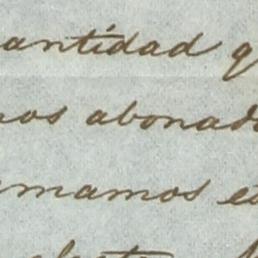 antidad q
nos abonad
mamos e